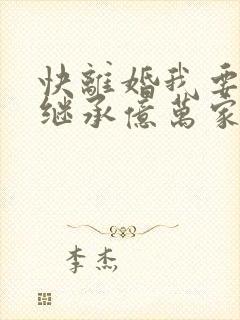 快離婚我要
继承億萬家
李杰